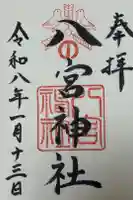 奉拝
八宮神社
令和八年一月十三日